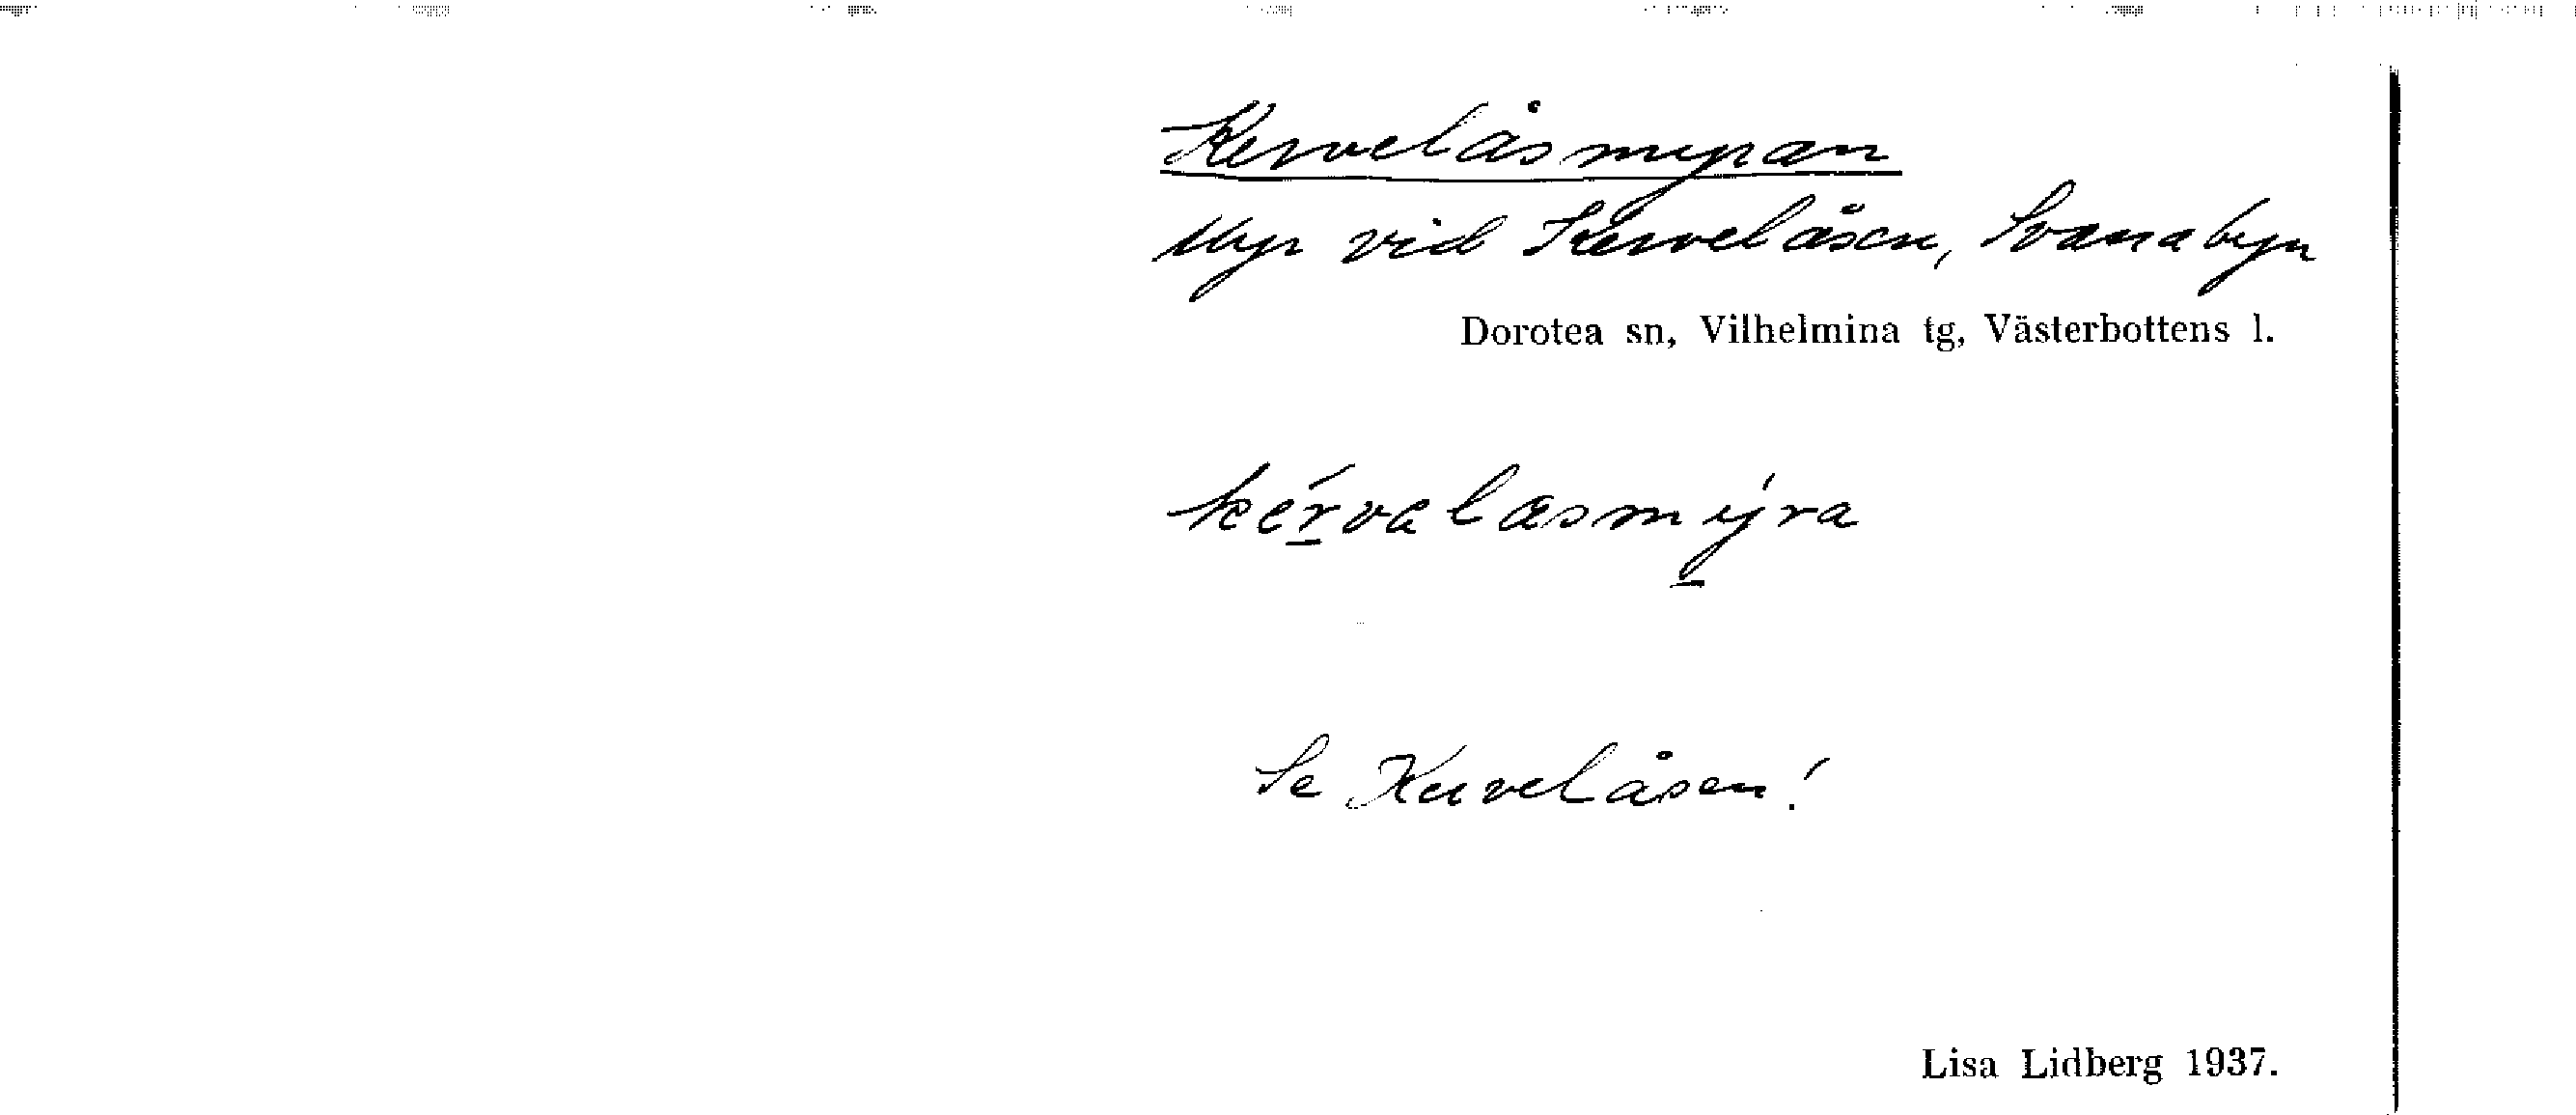 Kervelåsmyran
Myr vid Kervelåsen, Svanabyn
Dorotea sn, Vilhelmina tg, Västerbottens l.
kérvalasmýra
Se Kervelåsen!
Lisa Lidberg 1937.